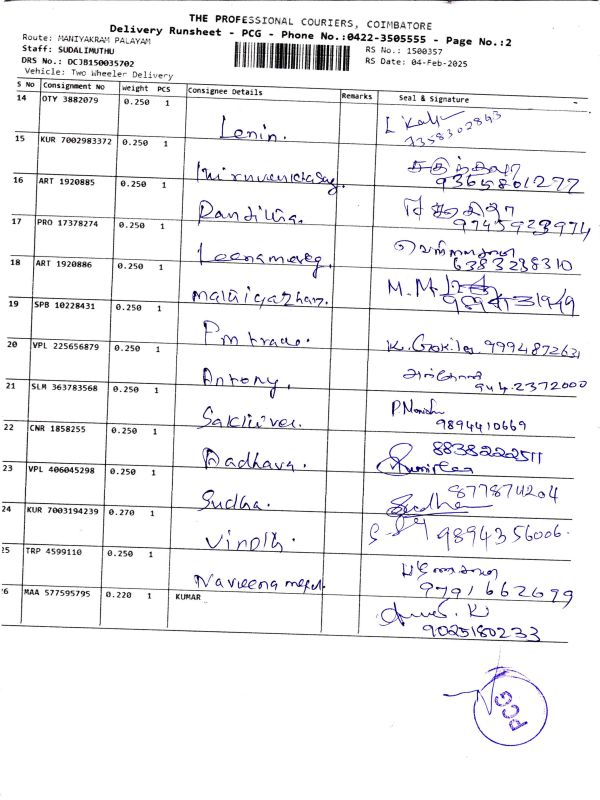 THE PROFESSIONAL COURIERS, COIMBATORE
Delivery Runsheet - PCG - Phone No.:0422-3505555 - Page No.:2
Route: MANIYAKRAM PALAYAM
Staff: SUDALIMUTHU RS No.: 1500357
DRS No.: DCJB150035702 RS Date: 04-Feb-2025
Vehicle: Two Wheeler Delivery
S No Consignment No Weight PCS Consignee Details Remarks Seal & Signature
14 OTY 3882079 0.250 1 Lenin. 7358302843
15 KUR 7002983372 0.250 1 9365801277
16 ART 1920885 0.250 1 9745923974
17 PRO 17378274 0.250 1 6383238310
18 ART 1920886 0.250 1 M.M
19 SPB 10228431 0.250 1 K. Gokila 9994872631
20 VPL 225656879 0.250 1 Antony. 944 2372000
21 SLM 363783568 0.250 1 Sakthivel. 9894410669
22 CNR 1858255 0.250 1 Aadhava. 8838222511
23 VPL 406045298 0.250 1 Sudha. Sudha
24 KUR 7003194239 0.270 1 Vinoth. 9894356006.
25 TRP 4599110 0.250 1 9791662699
26 MAA 577595795 0.220 1 KUMAR 9025180233
PCG